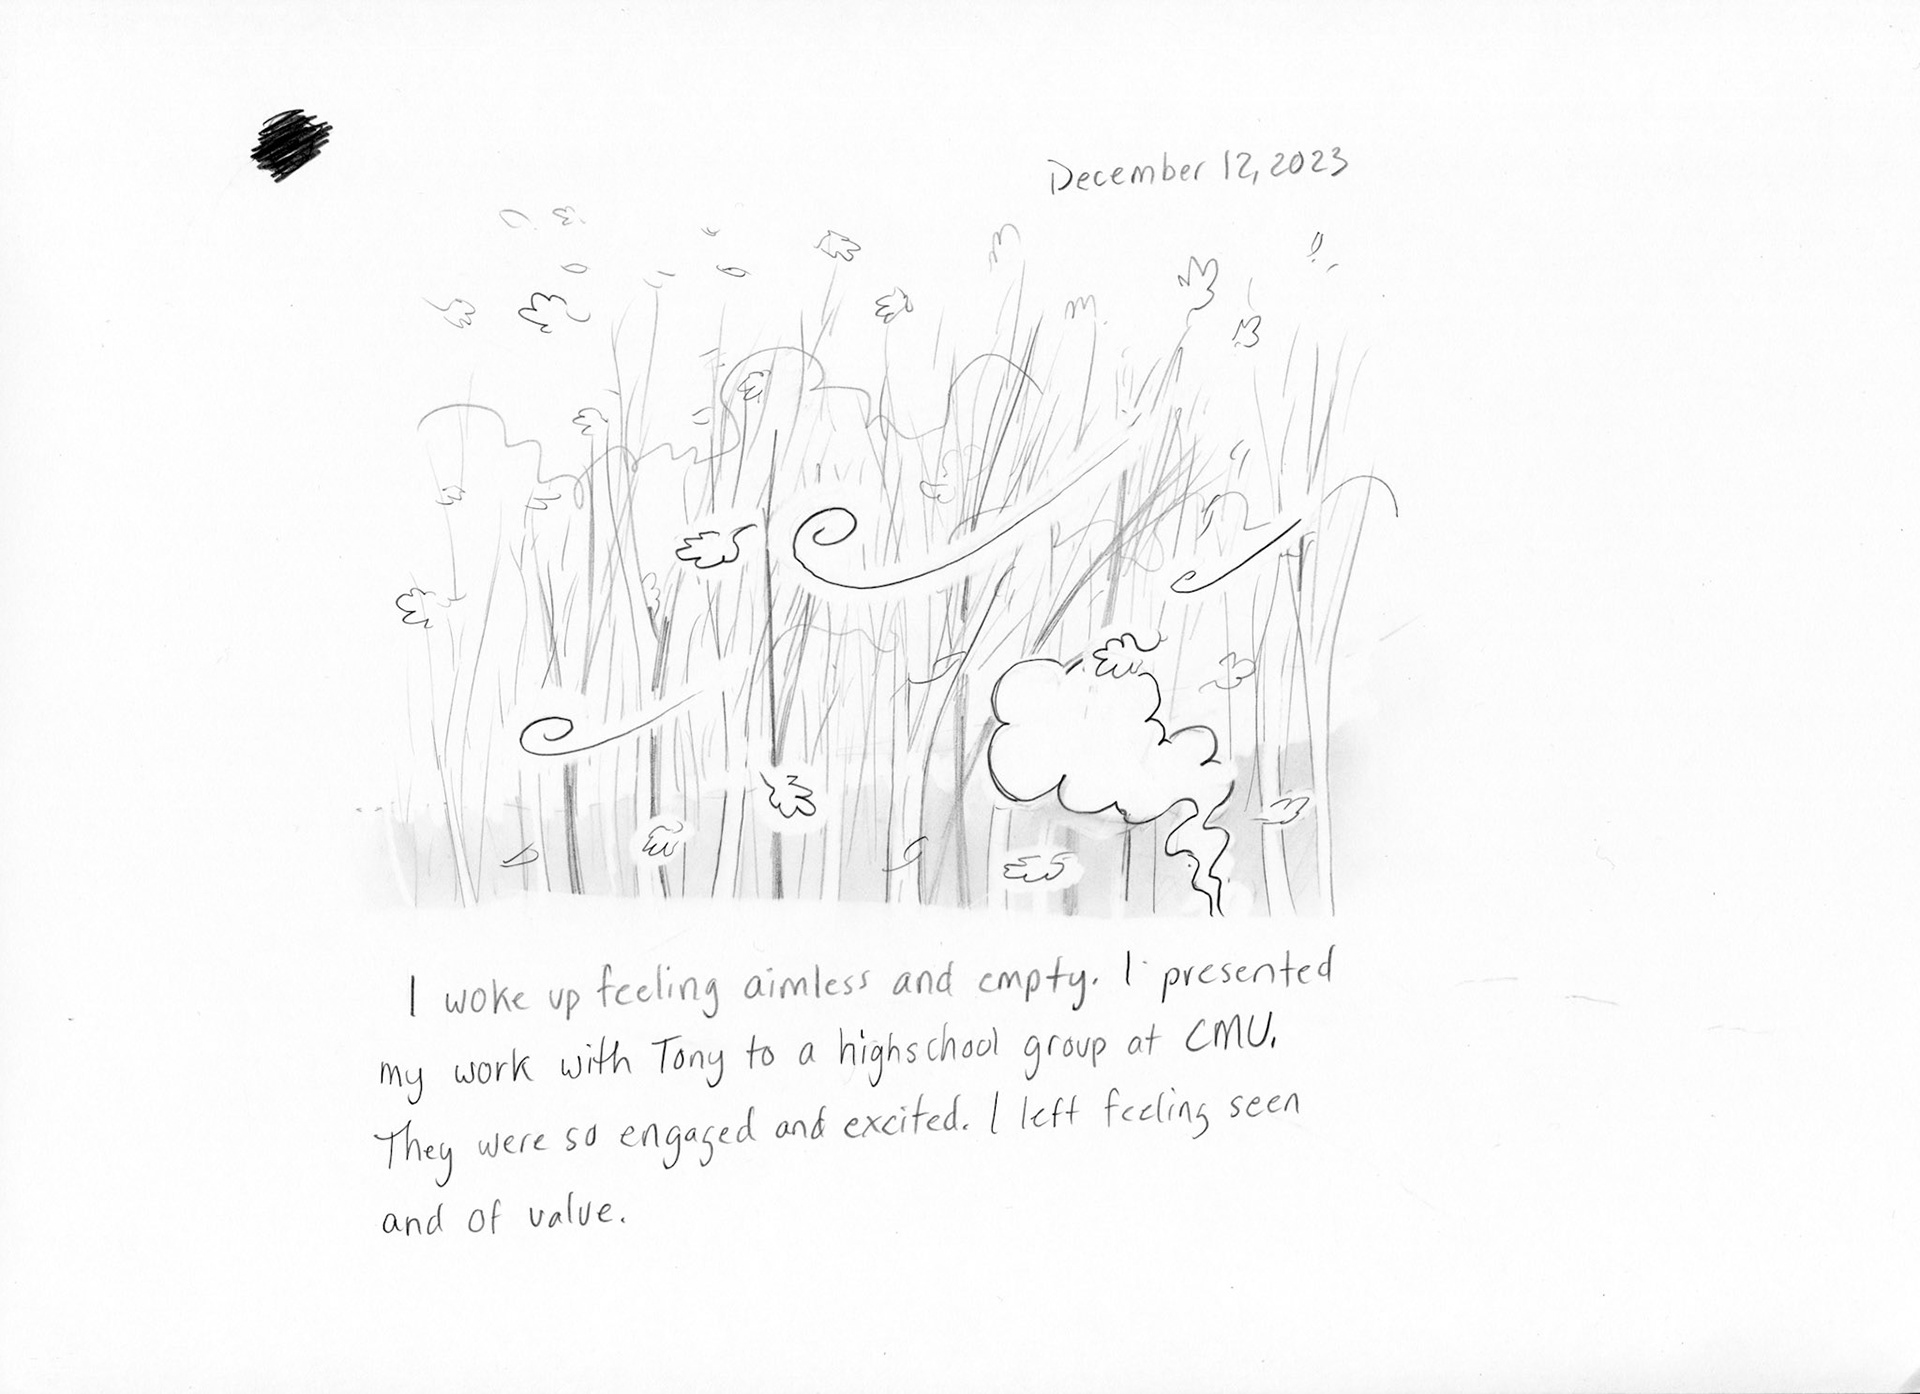 December 12, 2023
I woke up feeling aimless and empty. I presented
my work with Tony to a highschool group at CMU.
They were so engaged and excited. I left feeling seen
and of value.